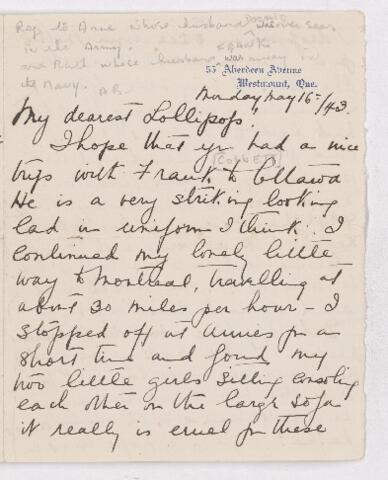 Ref. to Anne whose husband DONALD is overseas
in the Army.
and Ruth whose husband FRANK was away in
the Navy. A.R.
55 Aberdeen Avenue
Westmount, Que.
Monday May 16th/43.
My dearest Lollipops!
I hope that yr had a nice
trip with Frank [CORBETT] to Ottawa
He is a very striking looking
lad in uniform I think. I
continued my lonely little
way to Montreal, travelling at
about 30 miles per hour - I
stopped off at Annes for a
short time and found my
two little girls sitting consoling
each other on the large sofa
it really is cruel for these